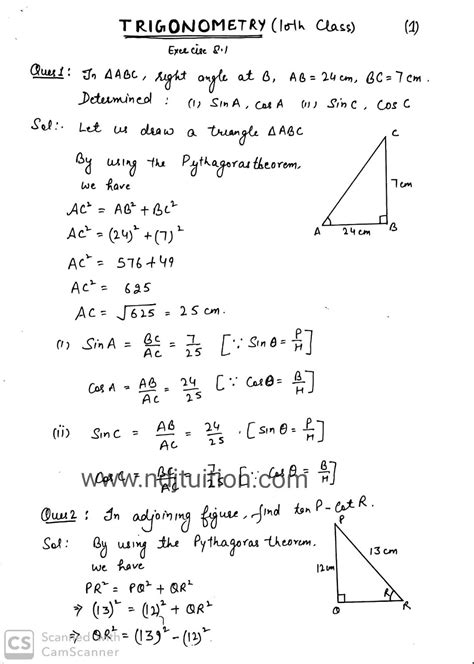 TRIGONOMETRY (10th Class) (1)
Exercise 8.1
Ques1: In ΔABC, right angle at B, AB = 24 cm, BC = 7 cm.
Determined : (i) Sin A, Cos A (ii) Sin C, Cos C
Sol:. Let us draw a triangle ΔABC
By using the Pythagoras theorem,
we have
AC² = AB² + BC²
AC² = (24)² + (7)²
AC² = 576 + 49
AC² = 625
AC = √625 = 25 cm.
C
7 cm
A 24 cm B
(i) Sin A = BC/AC = 7/25 [∵ Sin θ = P/H]
Cos A = AB/AC = 24/25 [∵ Cos θ = B/H]
(ii) Sin C = AB/AC = 24/25 . [Sin θ = P/H]
Cos C = BC/AC = 7/25 [∵ Cos θ = B/H]
www.nditution.com
Ques2 : In adjoining figure, find tan P - Cot R.
Sol: By using the Pythagoras theorem.
we have
PR² = PQ² + QR²
⇒ (13)² = (12)² + QR²
⇒ QR² = (13)² - (12)².
P
12cm 13 cm
Q R
CS Scanned with
CamScanner